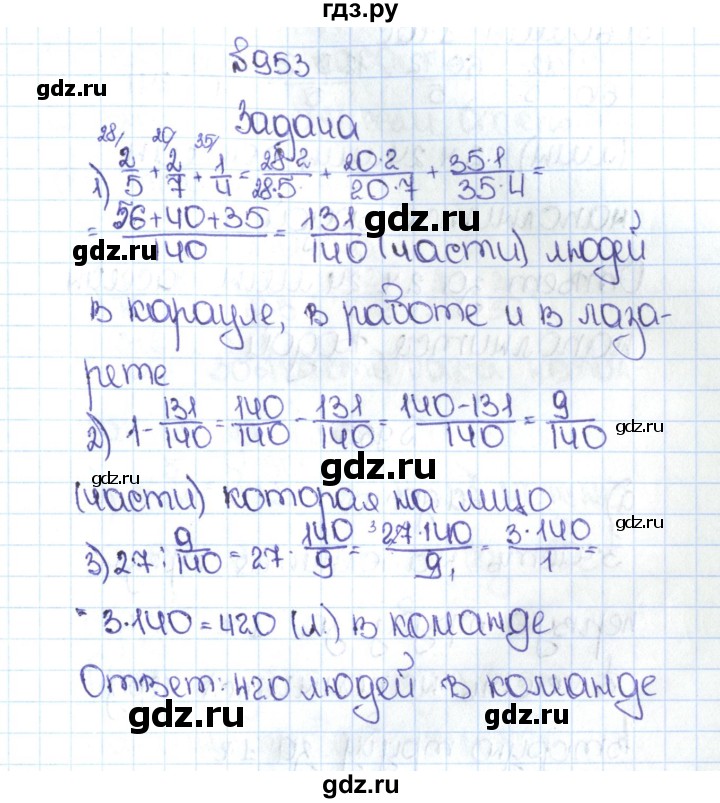 гдз.ру
№953
gdz.ru
gdz.ru
Задача
28/ 20/ 35/
1) 2/5 + 2/7 + 1/4 = 28·2/28·5 + 20·2/20·7 + 35·1/35·4 =
= 56+40+35/140 = 131/140 (части) людей
gdz.ru
gdz.ru
в карауле, в работе и в лаза-
рете
2) 1 - 131/140 = 140/140 - 131/140 = 140-131/140 = 9/140
gdz.ru
gdz.ru
gdz.ru
(части) которая на лицо
gdz.ru
3) 27 : 9/140 = 27 · 140/9 = 3 27·140/9 1 = 3·140/1 =
= 3·140 = 420 (л.) в команде
Ответ: 420 людей в команде
gdz.ru
gdz.ru
gdz.ru